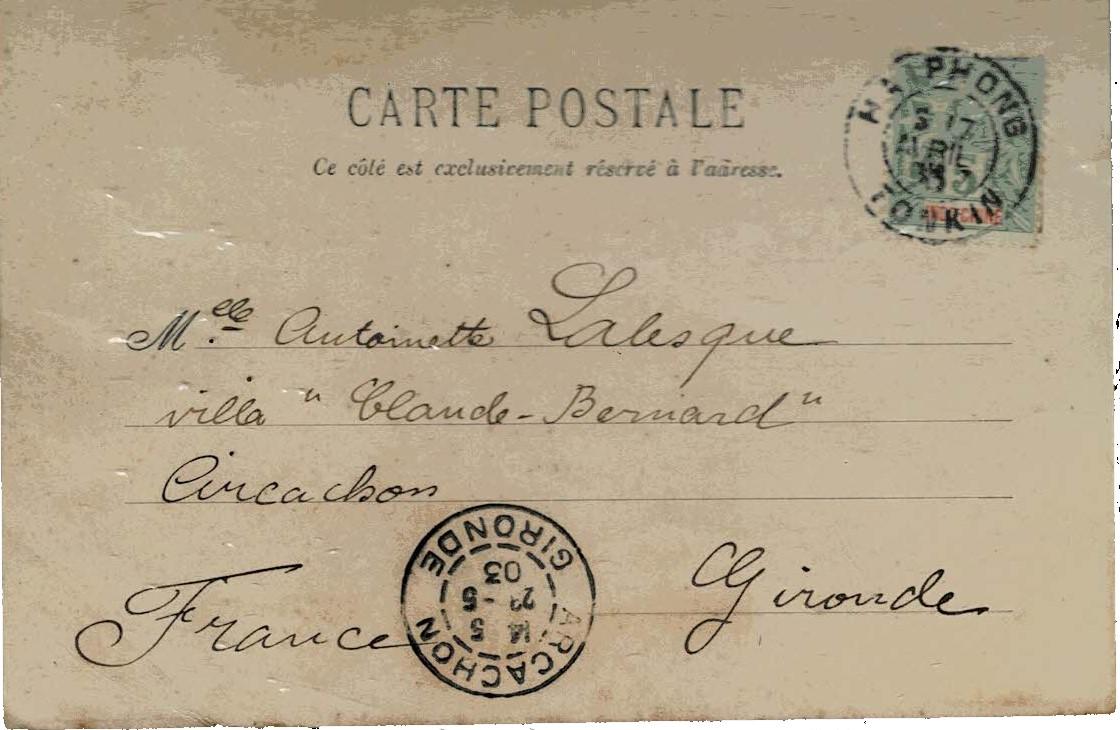 CARTE POSTALE
Ce côté est exclusivement réservé à l'adresse.
HAIPHONG
TONKIN
INDO-CHINE
5
Melle Antoinette Lalesque
villa "Claude-Bernard"
Arcachon
Gironde
France
ARCACHON
14 5
23 - 5
03
GIRONDE